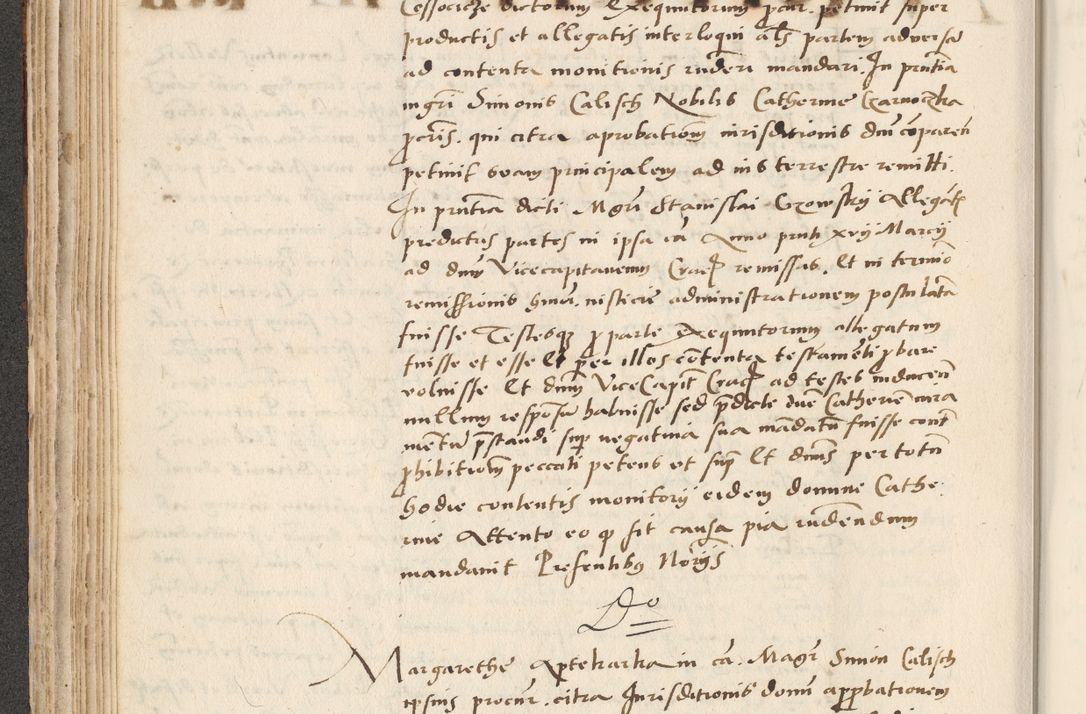 dictorum Exequutorum procur. petiuit super
productis et allegatis interloqui als partem adversa
ad contenta monitionis rnderi mandari. In pntia
mgri Simonis Calisch Nobilis Catherine Czarnoczka
procris. qui citra aprobationem iurisditionis dni comparen
petiuit eocam principalem ad ius terrestre remitti.
In pntia dicti Mgri Stanislai Growskij Allegate
predictas partes in ipsa ca Anno pnti xvij Marcij
ad dnum Vicecapitaneum Crac remissas. Et in termio
remissionis huiusmodi iusticie administrationem postulata
fuisse Testesque pro parte Exequutorum allegatum
fuisse et esse Et per illos contenta testamenti probare
voluisse Et dnum ViceCapit Crac ad testes inducen
nullum responsum habuisse sed predicte dne Catherine iura
mentum prestandi super negatiua sua mandatum fuisse cont
prohibitionem peccati petens ut supra Et dnus per totum
hodie contentis monitorij eidem domine Cathe
rine Attento eo quod sit causa pia rndendum
mandauit Presentibus Norijs
Do
Margarethe Aptekarka in ca. Magri Simon Calisch
ipsius procur. citra Jurisditionis domini approbationem